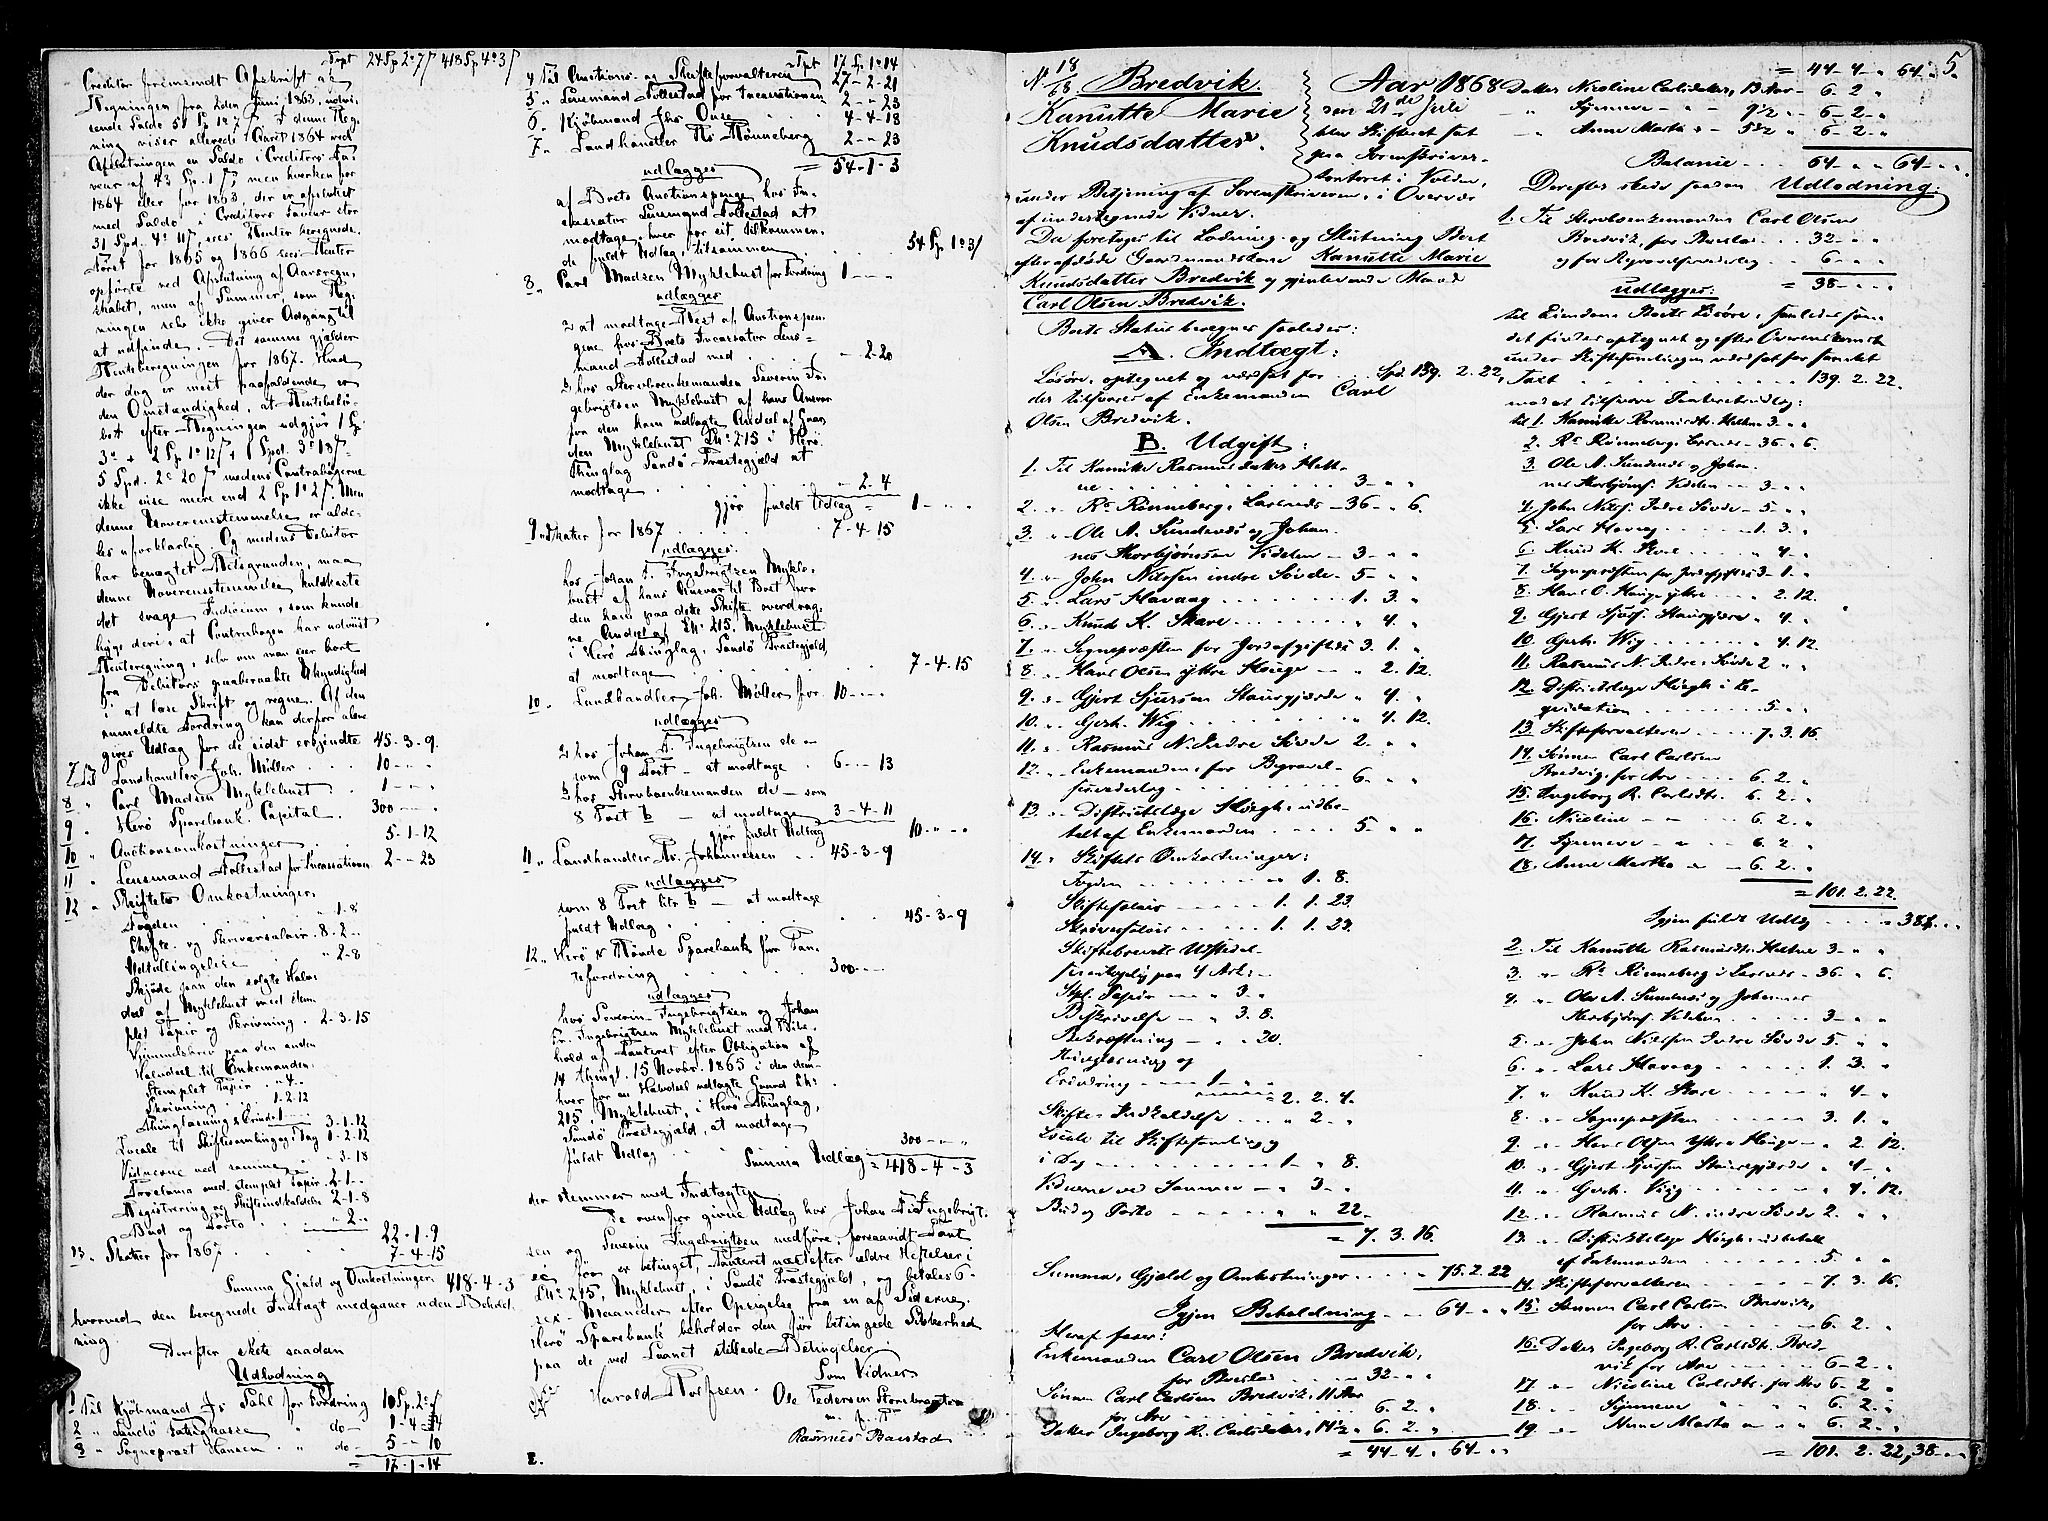 Tpt 24 Sp 2º 7 ß 418 Sp 4º 3 ß
Creditor fremsendt Afskrift af
Regningen fra 2den Juni 1863, udvi-
sende Saldo
ning viser allerede i Aaret 1864 ved
Afslutningen en Saldo i Creditors Fa-
veur af 43 Sp. 1 ß; men hverken for
1864 eller for 1863, der er afsluttet
med Saldo i Creditors Faveur stor
31 Spd. 4º 11 ß, sees Renter beregnede.
Først for 1865 og 1866 sees Renter
opförte ved Afslutning af Aarsregn-
skabet, men af Summer, som Reg-
ningen selv ikke giver Adgang til
at udfinde. Det samme gjelder
Renteberegningen for 1867. Hvad
der dog er mest paafaldende er
den Omstændighed, at Rentebelö-
bet efter Regningen udgjør 1 Sp.
3º + 2 Sp 1º 12 ß + 1 Spd. 3º 18 ß =
5 Spd. 2º 20 ß medens Contrabögerne
ikke vise mere end 2 Sp 1º 2 ß. Men
denne Uoverensstemmelse er alde-
les uforklarlig. Og medens Debitor
har benægtet Retsgrunden, maa
denne Uoverensstemmelse kuldkaste
det svage Indicium, som kunde
ligge deri, at Contrabogen har udvist
Renteregning, selv om man seer bort
fra Debitors paaberaabte Ukyndighed
i at læse Skrift og regne. Af den
anmeldte Fordring kan derfor alene
gives Udlæg for de sidst erkjendte 45-3-9.
7. Til Landhandler Joh. Müller . . . 10 - " - "
8 " Carl Madsen Myklebust . . 1 - " - "
9 " Herö Sparebank, Capital. 300 - " - "
10 " Auctionsomkostninger 5-1-12
11 " Lensmand Follestad for Incassationen 2 - " 23
12 " Skiftets Omkostninger.
Fogden . . . " 1-8
Skifte- og Skriversalair. 8-2- "
Udtællingelse . . " 2-8
Skjöde paa den solgte Halv-
del af Myklebust med stem-
plet Papir og Skrivning. 2-3-15
Hjemmelsbrev paa den anden
Halvdel til Enkemanden.
Stemplet Papir " 4 "
Skrivning . . 1-2-12
Thinglæsning & Erindr. 1 - " - " 3-1-12
Locale til Skiftesamling og i Dag 1-2-12
Vidnerne ved samme . . " 3-18
Proclama med stemplet Papir 2-1- "
Registrering og Skifteindkaldelse 2-1-8
Bud og Porto . . . " 2 "
22-1-9
13. Skatter for 1867 . . . 7-4-15
Summa Gjæld og Omkostninger 418-4-3
hvormed den beregnede Indtægt medgaaer uden Behold-
ning.
Derefter skete saadan
Udlodning
1 Til Kjöbmand Js Dahl for Fordring 10 Sp. 2º "
2 " Sandö Fattigkasse " do- 1-4-14
3 " Sogneprest Hansen . " do- 5 - " 10
= 17-1-14
Tpt 17 Sp. 1º 14
4 Til Auctions- og Skifteforvalteren 27-2-21
5 " Lensmand Follestad for Incassationen 2 - " 23
6 " Kjöbmand Jhs Owre . . . 4-4-18
7 " Landhandler Rs Rönneberg 2 - " 23
= 54-1-3
udlægges
af Boets Auctionspenge hos In-
cassator Lensmand Follestad at
modtage, hver for sit Tilkommen-
de fuldt Udlæg, tilsammen . . . 54 Sp 1º 3 ß
8 " Carl Madsen Myklebust for Fordring 1 - " - "
udlægges
a at modtage Rest af Auctionspen-
gene hos Boets Incassator Lens-
mand Follestad med . . . " - 2-20
b hos Stervboenkemanden Severin In-
gebrigtsen Myklebust af hans Ansvar
for den ham udlagte Andeel af Gaar-
den Myklebust L.Nº 215 i Herö
Thinglag Sandö Præstegjæld at
modtage . . . " - 2-4
gjør fuldt Udlæg = 1 - " - "
9. " Skatter for 1867 . . . 7-4-15
udlægges.
hos Johan F. Ingebrigtsen Mykle-
bust af hans Ansvar til Boet for
den han paa dette Skifte overdrag-
ne Andeel af L.Nº 215, Myklebust
i Herö Thinglag, Sandö Præstegjæld,
at modtage . . . 7-4-15
10 " Landhandler Joh. Müller for 10 - " - "
udlægges
a hos Johan F. Ingebrigtsen de —
som 9 Post — at modtage . 6 - " 13
b hos Stervboenkemanden de — som
8 Post b — at modtage 3-4-11
gjør fuldt Udlæg 10 - " - "
11 " Landhandler Rs. Johannessen . . 45-3-9
udlægges
som 8 Post litr b — at modtage
fuldt Udlæg . . . 45-3-9
12 " Herö & Rövde Sparebank for Pan-
tefordring . . . 300 - " - "
udlægges
hos Severin Ingebrigtsen og Johan
Fr. Ingebrigtsen Myklebust med Bibe-
hold af Panteret efter Obligation af
14 thingl. 15 Novbr. 1865 i den dem
hver for en Halvdeel udlagte Gaard L.Nº
215, Myklebust, i Herö Thinglag,
Sandö Præstegjæld, at modtage
fuldt Udlæg . . . 300 - " - "
Summa Udlæg = 418-4-3
der stemmer med Indtægten
De ovenfor givne Udlæg hos Johan Fr. Ingebrigt-
sen og Severin Ingebrigtsen medføre, forsaavidt Pant
ei før er betinget, Panteret næstefter ældre Heftelser i
L.Nº 215, Myklebust, i Sandö Præstegjæld, og betales 6-
sex- Maaneder efter Opsigelse fra en af Siderne.
Herö Sparebank beholder den för betingede Sikkerhed
paa de ved Laanet stillede Betingelser
Som Vidner
Harald Torfsen. Ole Pedersen Storebrigten
m. p. P.
Rasmus Barstad
2.
5.
Nº 18/68 Bredvik.
Kanutte Marie
Knudsdatter.
Aar 1868
den 21de Juli
blev Skifteret sat
paa Sorenskriver-
kontoret i Volden,
under Betjening af Sorenskriveren, i Overvær
af undertegnede Vidner.
Da foretoges til Lodning og Slutning Boet
efter afdøde Gaardmandskone Kanutte Marie
Knudsdatter Bredvik og gjenlevende Mand
Carl Olsen Bredvik.
Boets Status beregnes saaledes:
A. Indtægt:
Lösöre, optegnet og værdsat for . . . Spd. 139. 2. 22,
der tilsvares af Enkemanden Carl
Olsen Bredvik.
B. Udgift:
1. Til Kanutte Rasmusdatter Hatt-
ne . . . 3 - " "
2. " Rs Rönneberg, Larsnæs — 36 - " 6.
3. " Ole A. Sundnæs og Johan-
nes Thorbjørnsen Vidden — 3 - " "
4. " John Nilssen indre Sövde - 5 - " "
5. " Lars Havaag . . . 1. 3. "
6. " Knud K. Skare . . . " 4. "
7. " Sognepræsten for Jordafgift 3. 1. "
8. " Hans Olsen ytre Houge — " 2. 12.
9. " Gjert Sjursen Haugsgjærde " 4. "
10. " Gerh. Wiig . . . " 4. 12.
11. " Rasmus N. Indre Sövde 2. " "
12. " Enkemanden, for Begravel-
sesvederlag . . . 6. " "
13. " Districtslæge Höegh, udbe-
talt af Enkemanden . . . 5 - " "
14. " Skiftets Omkostninger:
Fogden . . . " 1. 8.
Skiftesalair . . . 1. 1. 23.
Skriversalair . . . 1. 1. 23.
Skiftebrevets Udstedel-
se paa 4 Ark:
Stpl. Papir — " 3. "
Beskrivelse — " 3. 8.
Bekræftning — " " 20.
Thinglæsning og
Erindring — 1 - " "
= 2. 2. 4.
Skifte-Indkaldelse . . . " 2 - "
Locale til Skiftesamling og
i Dag . . . 1 - " 8.
Vidnerne ved Samme — " 3 - "
Bud og Porto . . . " " 22.
= 7. 3. 16.
Summa, Gjæld og Omkostninger . . . 75. 2. 22
Igjen Beholdning — 64 - " "
Heraf faaer:
Enkemanden Carl Olsen Bredvik,
for Boeslod . . . 32 - " "
Sønnen Carl Carlsen Bredvik, 11 Aar
for Arv . . . 6. 2. "
Datter Ingeborg R. Carlsdatter, 14½ " 6. 2. "
= 44-4 " 64 - " "
= 44-4 " 64 "
Datter Nicoline Carlsdatter, 13 Aar - 6-2 "
— Synneve — " - 9½ " - 6-2 - "
— Anne Marta " - 5½ " - 6-2 - "
Balance . . . 64 " " 64 - " "
Derefter skede saadan Udlodning:
1. Til Stervboenkemanden Carl Olsen
Bredvik, for Boeslod . . . 32 - " "
og for Begravelsesvederlag . . . 6 - " "
= 38 - " "
udlægges:
til Eiendom Boets Lösöre, saaledes som
det findes optegnet og efter Overenskomst
under Skiftesamlingen værdsat for samlet
Taxt . . . 139. 2. 22.
til 1. Kanutte Rasmusdt. Hattne 3 - " "
2. Rs Rönneberg, Larsnæs - 36 " 6.
3. Ole A. Sundnæs og Johan-
nes Thorbjörns. Vidden — 3 - " "
4. John Nilss. Indre Sövde - 5 - " "
5. Lars Havaag . . . 1. 3. "
6. Knud K. Skare . . . " 4 - "
7. Sognepræsten for Jordafgift 3 - 1. "
8. Hans O. Houge ytre . . . " 2. 12.
9. Gjert Sjurs. Haugsgjærde " 4. "
10. Gerh. Wiig . . . " 4. 12.
11. Rasmus N. Indre Sövde 2 " "
12. Districtslæge Höegh
. . . 5. - "
13. Skifteforvalteren . . . 7. 3. 16.
14. Sønnen Carl Carlsen
Bredvig, for Arv . . . 6. 2. "
15. Ingeborg R. Carlsdt. 6. 2. "
16. Nicoline — " - 6. 2. "
17. Synneve — " 6. 2 "
18. Anne Martha " - 6. 2. "
= 101. 2. 22.
Igjen fuldt Udlæg . . . 38 - " "
2. Til Kanutte Rasmusdt. Hattne 3 - " "
3. " Rs Rönneberg i Larsnæs - 36 " 6.
4. " Ole A. Sundnæs og Johannes
Thorbjörns. Vidden . . . 3 - " "
5. " John Nilssen Indre Sövde 5 - " "
6. " Lars Havaag . . . 1. 3. "
7. " Knud K. Skare . . . " 4 - "
8. " Sognepræsten . . . 3. 1. "
9. " Hans Olsen Ytre Houge — " 2. 12.
10. " Gjert Sjursen Haugsgjærde " 4 - "
11. " Gerh. Wiig . . . " 4. 12.
12. " Rasmus N. indre Sövde 2. " "
13. " Districtslæge Höegh, udbetalt
af Enkemanden . . . 5 " "
14. " Skifteforvalteren . . . 7. 3. 16.
15. " Sønnen Carl Carlsen Bredvik,
for Arv . . . 6. 2. "
16. " Datter Ingeborg R. Carlsdt. Bred-
vik for Arv . . . 6-2 - "
17 " — Nicoline Carlsdtr. for Arv 6-2 "
18. " — Synneve " " " 6. 2. "
19. " — Anne Marta " " " 6. 2. "
= 101. 2. 22, 38 - " "